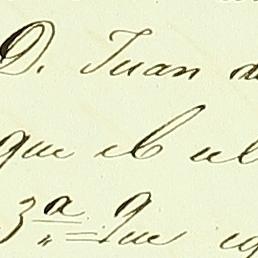 D. Juan d
que el ul
3ª Que